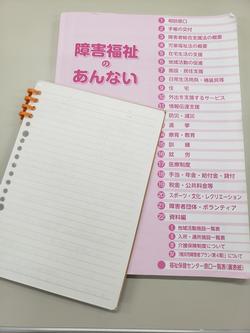 障害福祉
の
あんない
1 相談窓口
2 手帳の交付
3 障害者総合支援法の概要
4 児童福祉法の概要
5 在宅生活の支援
6 地域活動の促進
7 施設・居住支援
8 日常生活用具・補装具等
9 住宅
10 外出を支援するサービス
11 情報伝達支援
12 防災・減災
13 進学
14 療育・教育
15 訓練
16 就労
17 医療制度
18 手当・年金・給付金・貸付
19 税金・公共料金等
20 スポーツ・文化・レクリエーション
21 障害者団体・ボランティア
22 資料編
地域活動施設一覧
入所・通所施設一覧
介護保険制度について
について
福祉保健センター窓口一覧表(裏表紙)